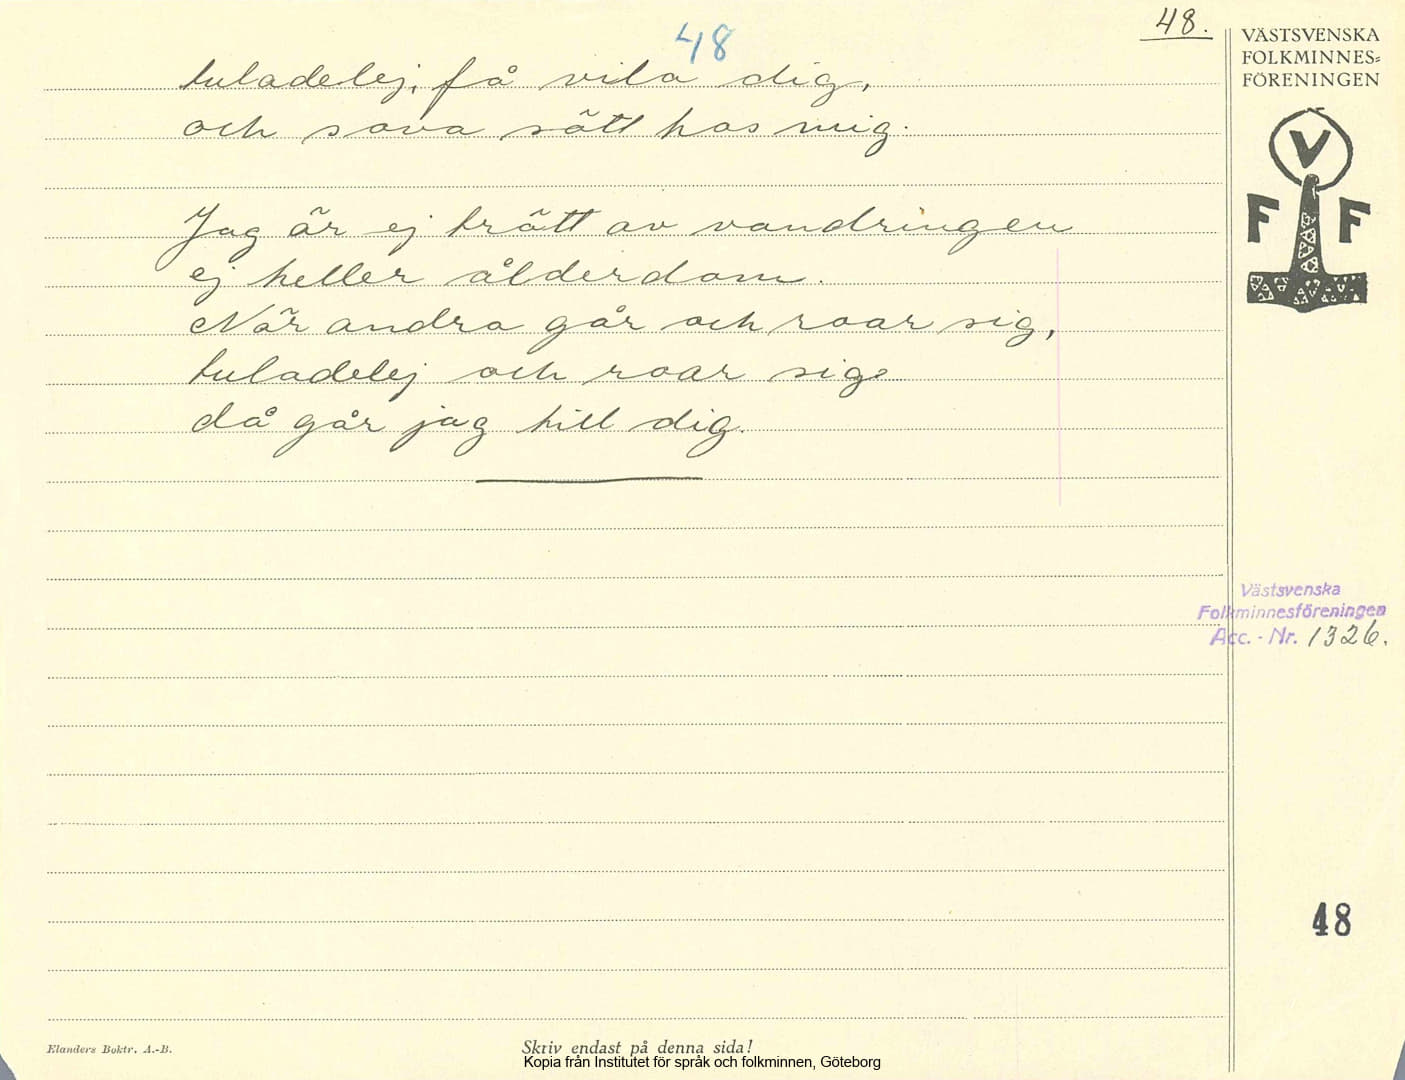 48.
48
tuladelej, få vila dig,
och sova sött hos mig.
Jag är ej trött av vandringen
ej heller ålderdom.
När andra går och roar sig,
tuladelej och roar sig
då går jag till dig.
VÄSTSVENSKA
FOLKMINNES=
FÖRENINGEN
V
F F
Västsvenska
Folkminnesföreningen
Acc. - Nr. 1326.
48
Elanders Boktr. A.-B.
Skriv endast på denna sida!
Kopia från Institutet för språk och folkminnen, Göteborg